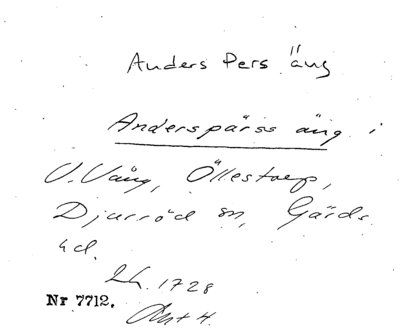 Anders Pers äng
Anderspärss äng i
V. Vång, Öllestorp,
Djurröd sn, Gärds
hd.
Lh. 1728
Nr 7712.